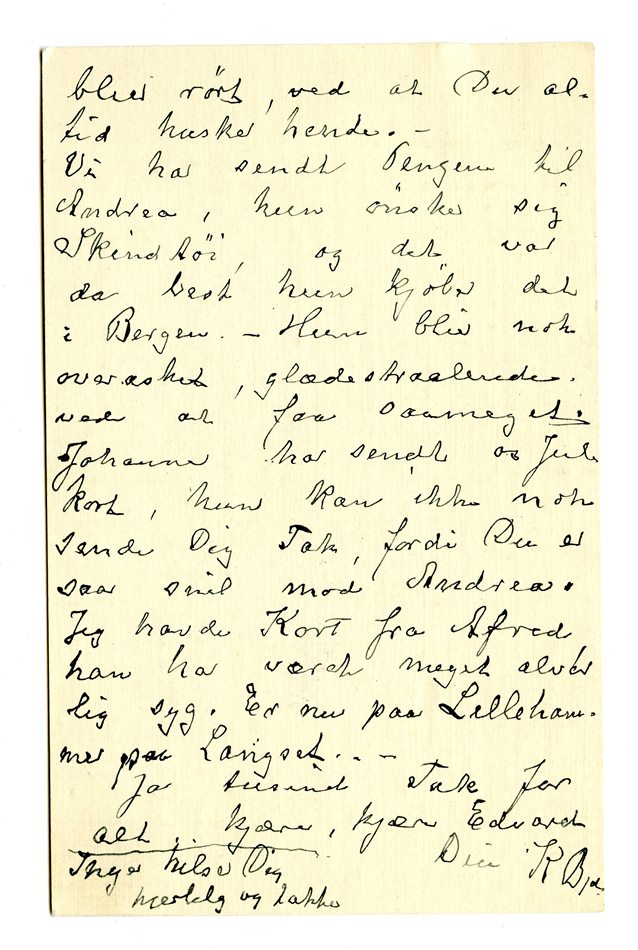 blir rört, ved at Du al-
tid husker hende. -
Vi har sendt Pengene til
Andrea, hun ønsker sig
Skindtöi, og det var
da best hun kjöber det
i Bergen. - Hun blir nok
overasket, glædestraalende.
ved at faa saameget.
Johanne har sendt os Jule
kort, hun kan ikke nok
sende Dig Tak, fordi Du er
saa snil mod Andrea.
Jeg havde Kort fra Afred
han har været meget alvor
lig syg. Er nu paa Lilleham-
mer paa Langset.. -
Ja tusind Tak for
alt.. kjære, kjære Edvard
Din K Bj.
Inger hilser Dig
hjertelig og takker